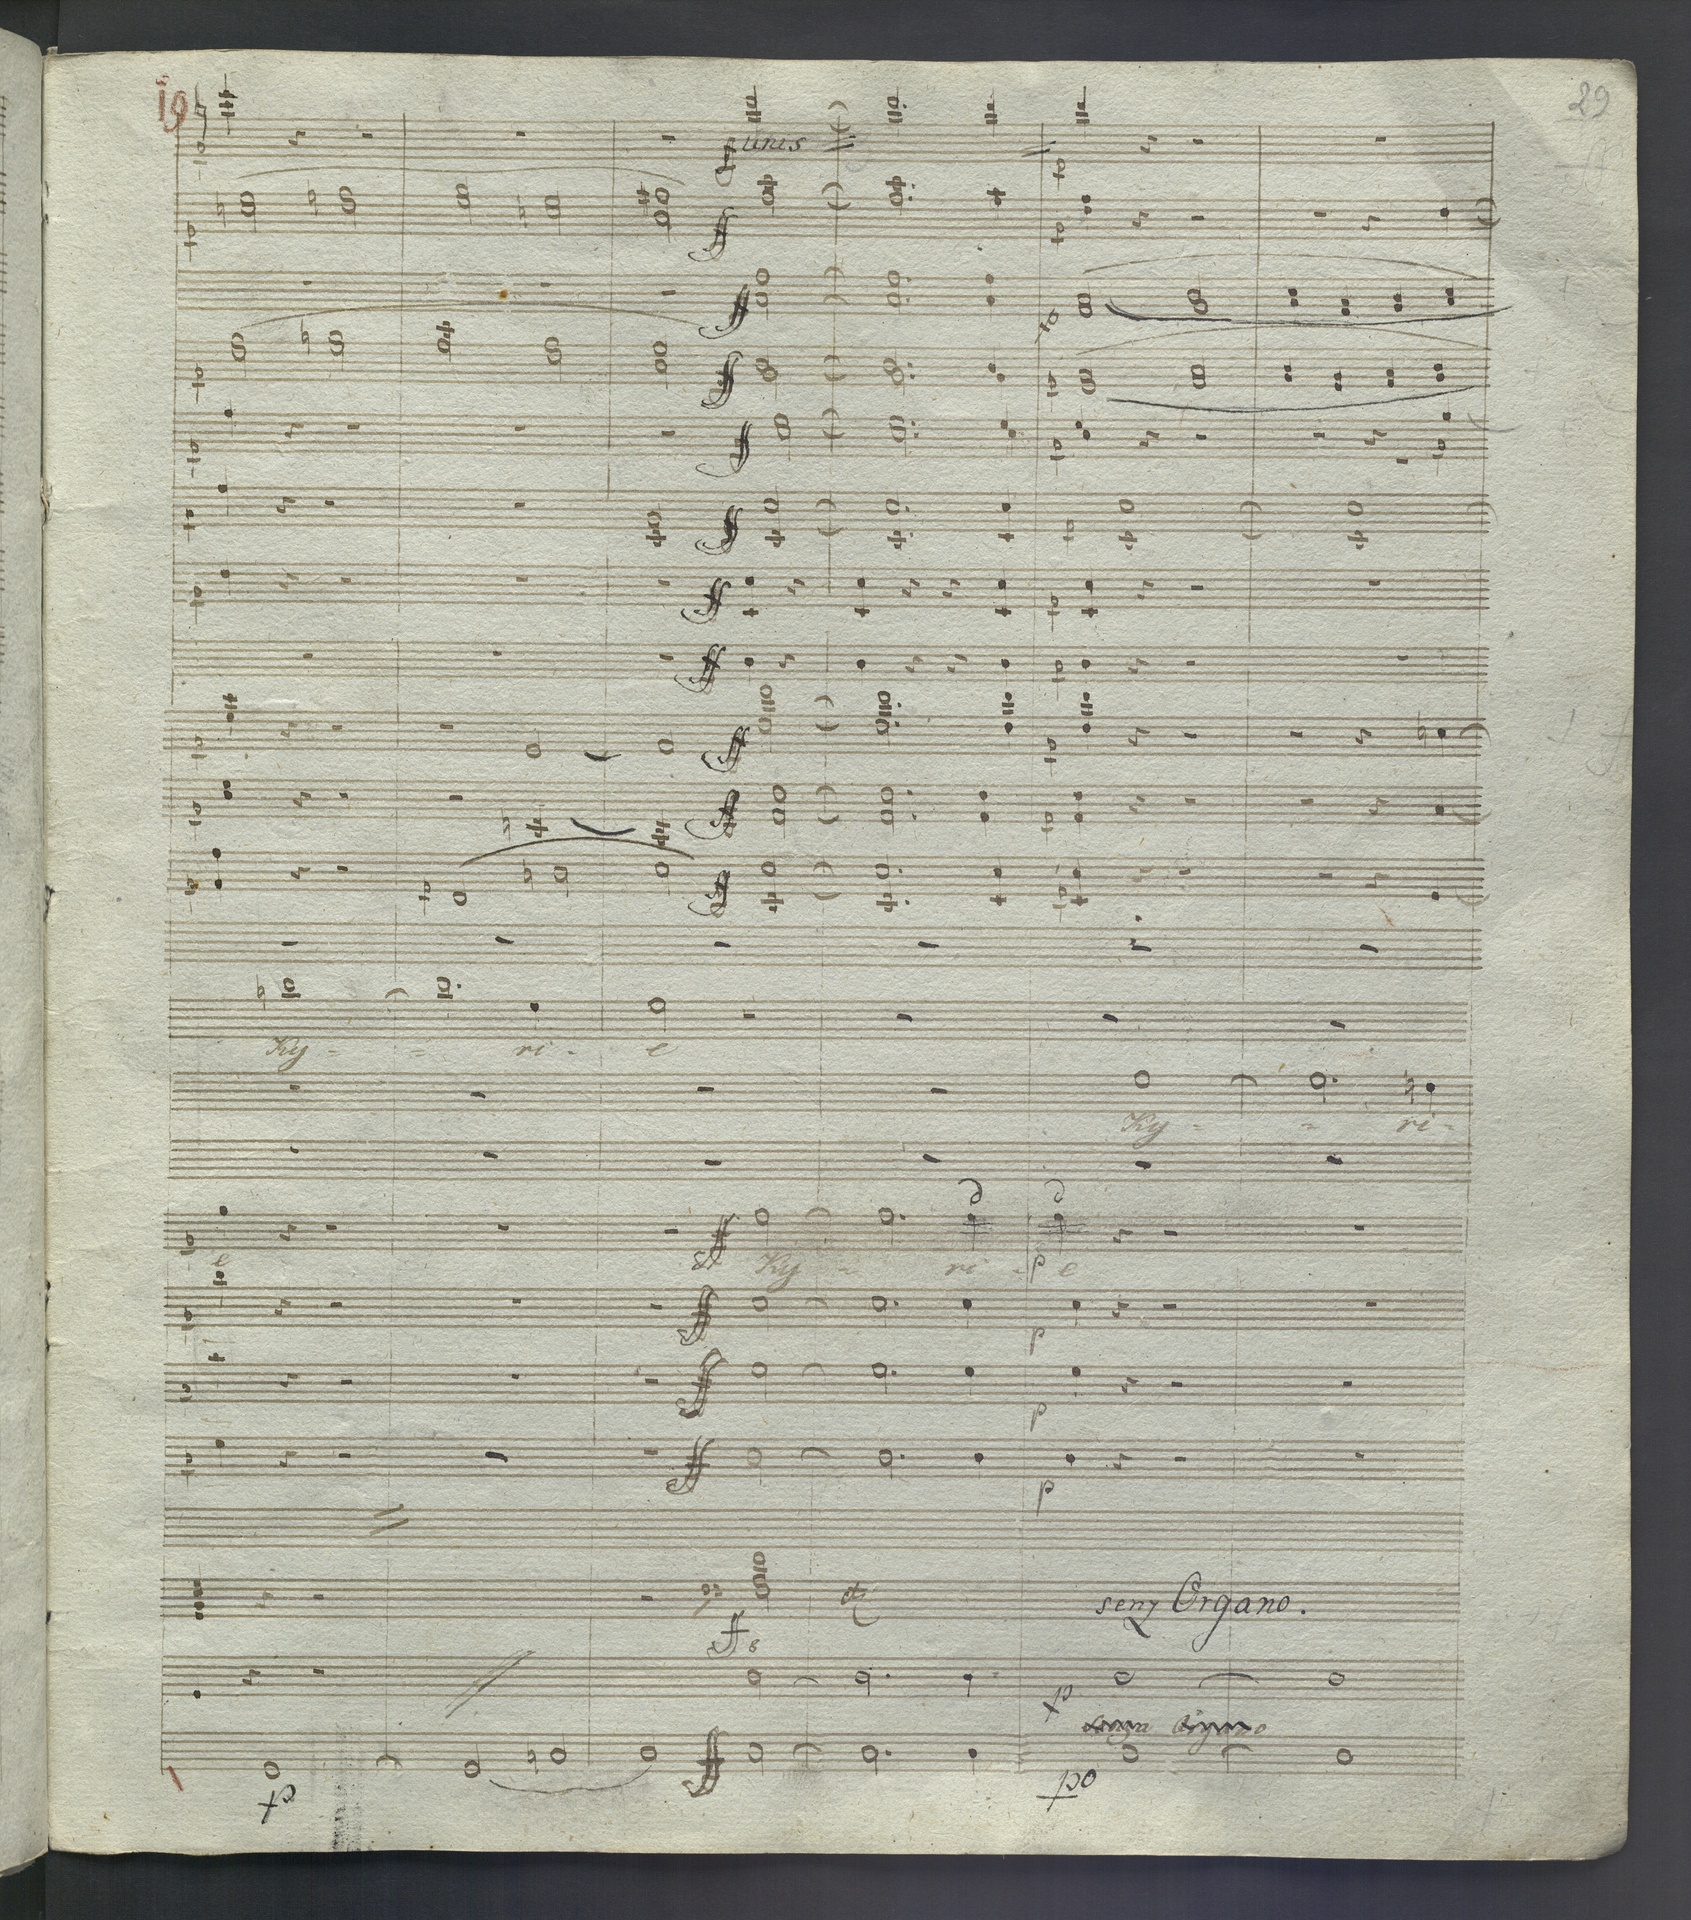 19
29
unis
p
p
ff
ff
ff
po
p
ff
p
p
ff
p
p
ff
p
p
ff
p
ff
p
p
ff
p
p
ff
p
p
ff
p
Ky - - ri - e
Ky - - ri -
p
ff
e Ky - ri - e
p
p
ff
p
p
ff
p
p
ff
p
senz Organo.
ff
6
p
p
ff
po